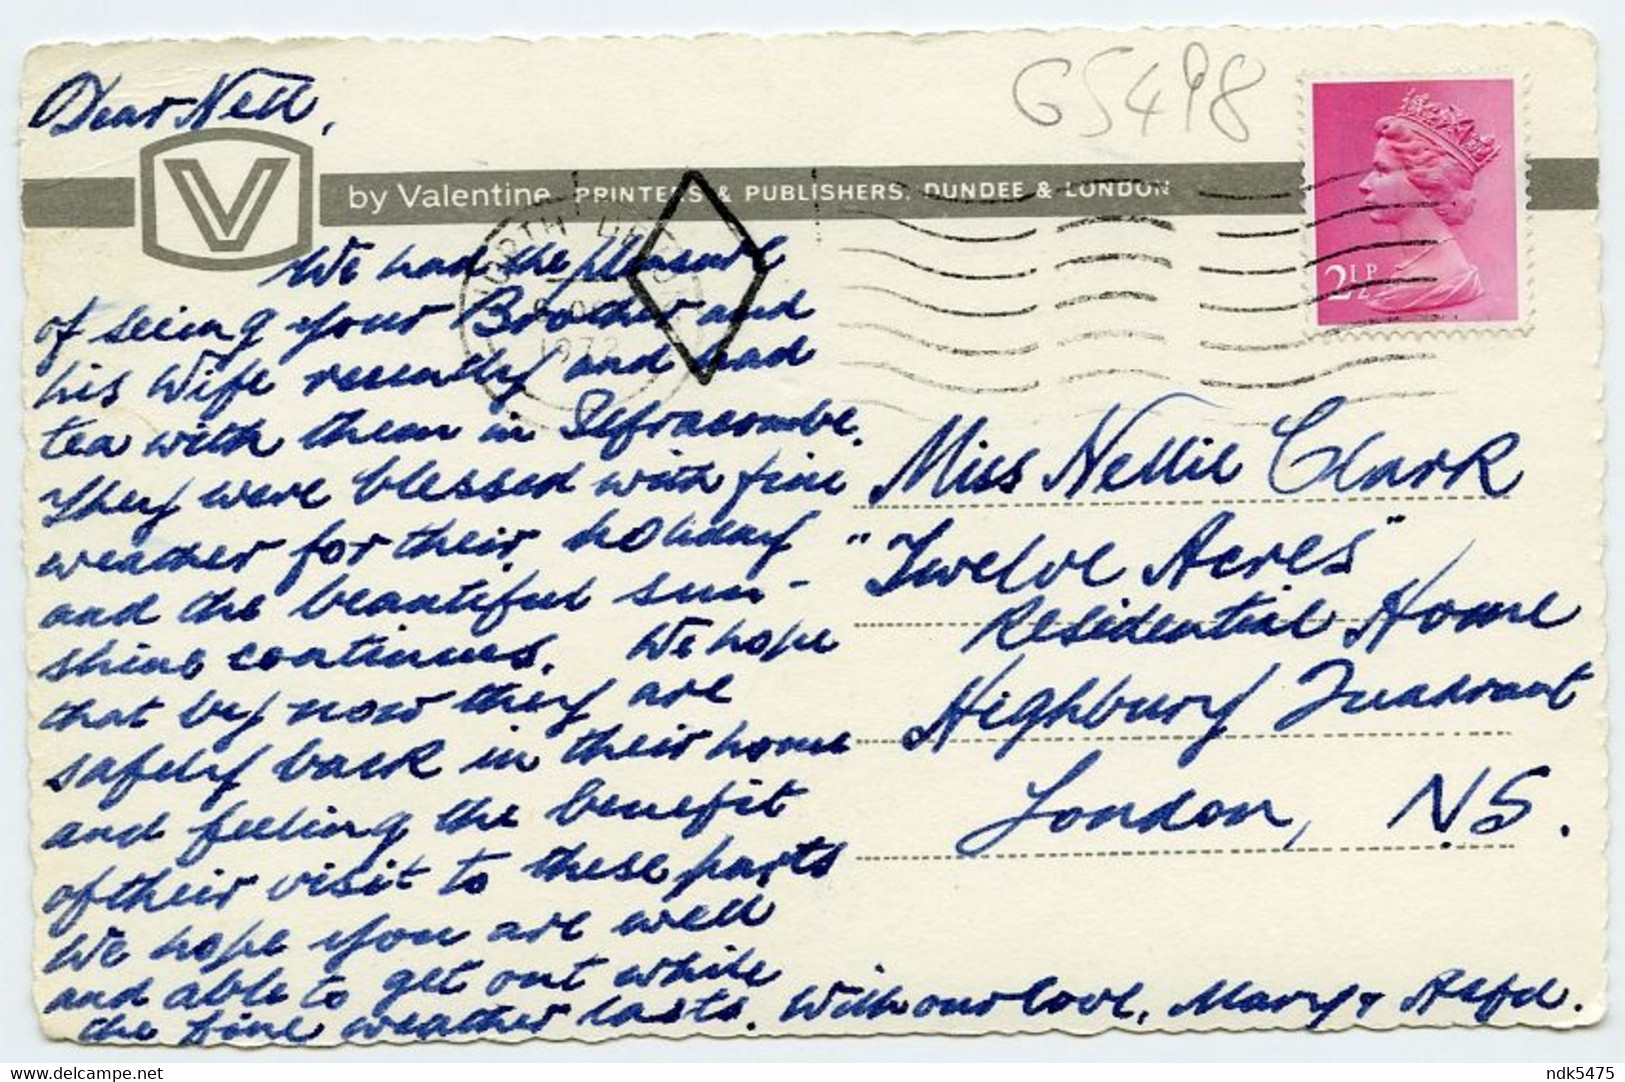 G5498
Dear Nell,
V
by Valentine PRINTERS & PUBLISHERS, DUNDEE & LONDON
NORTH DEVON
1972
2½P
We had the pleasure
of seeing your Brother and
his Wife recently and had
tea with them in Ilfracombe.
They were blessed with fine
weather for their holiday
and the beautiful sun-
shine continues. We hope
that by now they are
safely back in their home
and feeling the benefit
of their visit to these parts
We hope you are well
and able to get out while
the fine weather lasts. With our love, Mary & Alfd.
Miss Nellie Clark
"Twelve Acres"
Residential Home
Highbury Quadrant
London, N5.
delcampe.net
ndk5475